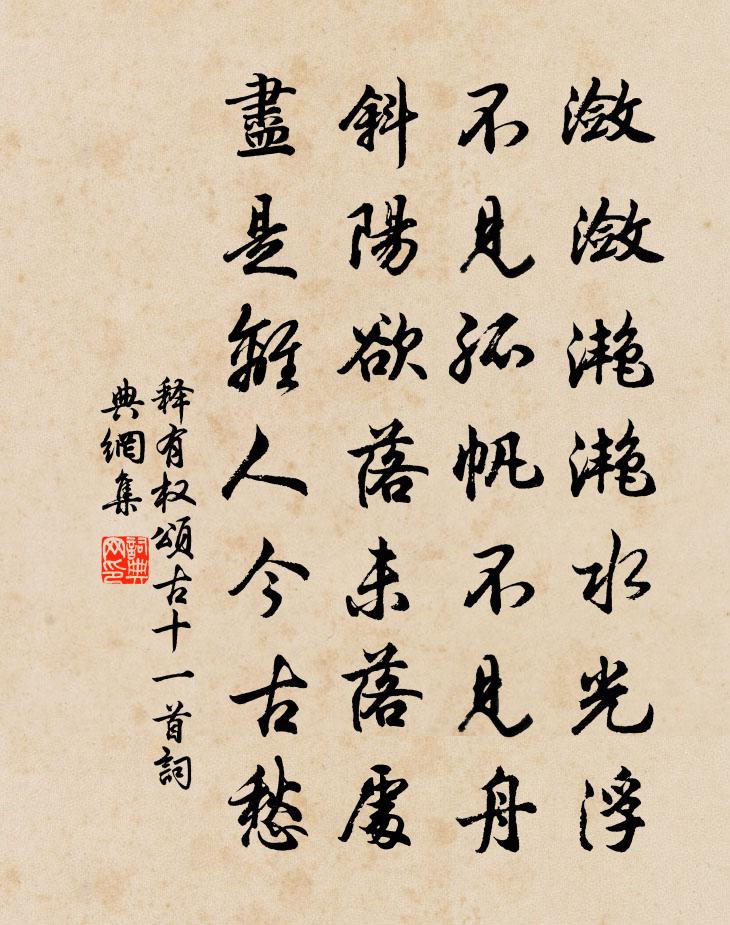 瀲瀲灔灔水光浮
不見孤帆不見舟
斜陽欲落未落處
盡是離人今古愁
释有权頌古十一首詞
典網集
詞典
网印